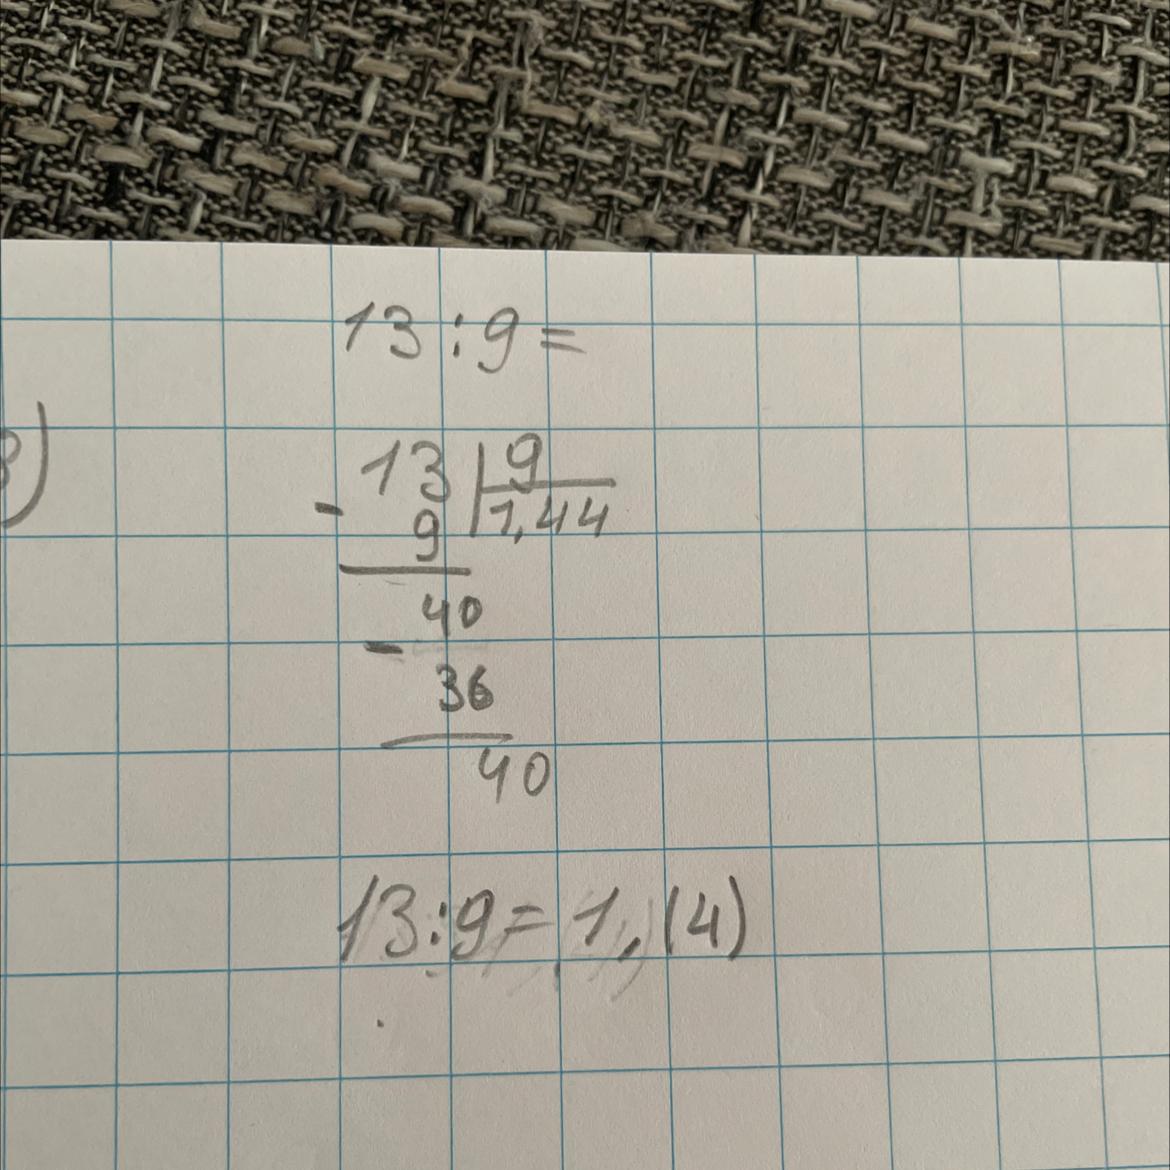 13:9=
3)
13 | 9
- 9 | 1,44
40
- 36
40
13:9=1,(4)